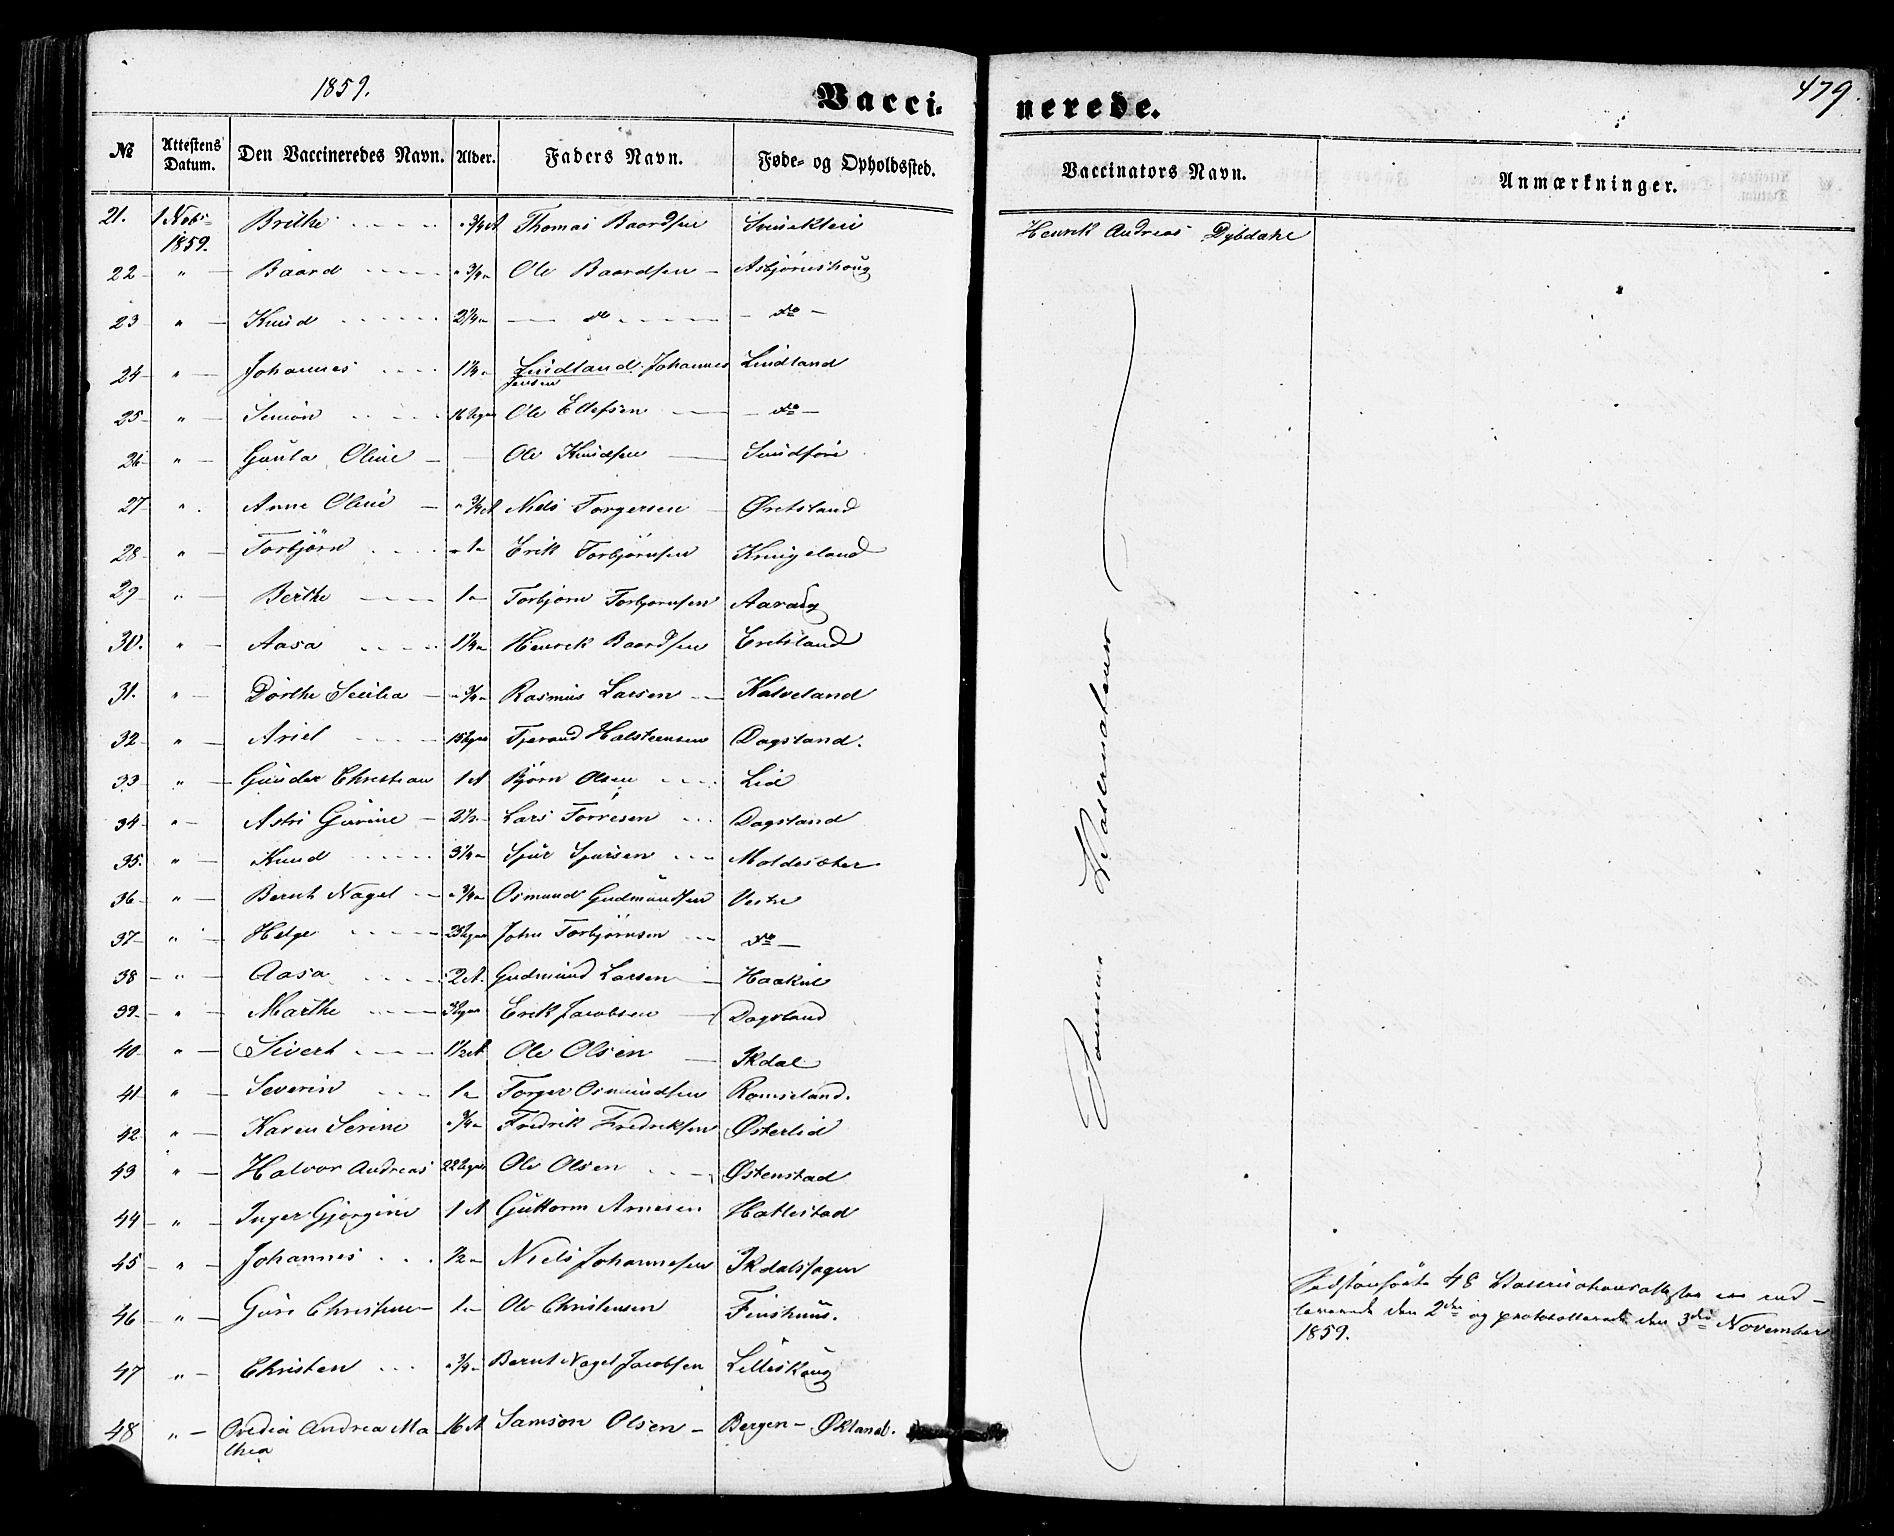 1859.
Vacci-
nerede.
479.
№ Attestens Datum. Den Vaccineredes Navn. Alder. Faders Navn. Føde- og Opholdssted. Vaccinators Navn. Anmærkninger.
21. 1 Nobr 1859. Brithe " 3/4 A Thomas Baardsen Henrik Andreas Dybdahl
22 " Baard " 3/4 " Ole Baardsen Asbjørnshoug
23 " Knud 2 1/4 " do do
24 " Johannes 1 1/4 " Lindland. Johannes Jensen Lindland
25 " Simon 16 Uger Ole Ellefsen do
26 " Gunla Oline Ole Knudsen Sundføri
27 " Anne Oline " 3/4 A Niels Torgersen Øretsland
28 " Torbjørn " 1 " Erik Torbjørnsen Kringeland
29 " Berthe 1 " Torbjørn Torbjørnsen Aaraug
30. " Aasa 1 1/4 " Henrik Baardsen Eretsland
31. " Dorthe Secilia " 3/4 " Rasmus Larsen Kalveland
32 " Ariel 15 Uger Tjerand Halsteensen Dagsland.
33 " Gunder Christian 1 A Bjørn Olsen Lid
34 " Astri Gurine 2 1/2 Lars Torresen Dagsland
35. " Knud 3 1/4 " Sjur Sjursen Moldesæter
36 " Bernt Nagel " 3/4 " Osmund Gudmundsen Vestre
37 " Helge 23 Uger John Torbjørnsen do
38 " Aasa 2 A. Gudmund Larsen
39. " Marthe Uger Erik Jacobsen Dagsland
40 " Sivert 1 1/2 A Ole Olsen Ikdal
41 " Severin 1 " Torger Osmundsen Romseland.
42 " Karen Serine " 3/4 " Fredrik Fredriksen Østerlid
43 " Halvor Andreas 22 Uger Ole Olsen Østenstad
44 " Inger Gjørgine 1 A Guttorm Arnesen Hattestad
45 " Johannes 1/2 " Niels Johannesen Ikdalshagen
46 " Guri Christine 1 " Ole Christensen Finshuus.
47 " Christen " 3/4 " Bernt Nagel Jacobsen Lilleskoug
48 " Ovedia Andrea Mathea 16 A Samson Olsen Bergen - Økland.
Vaccinateur
48 Vaccinationsattester ere indleverede den 2den og protocollerede den 3die November 1859.